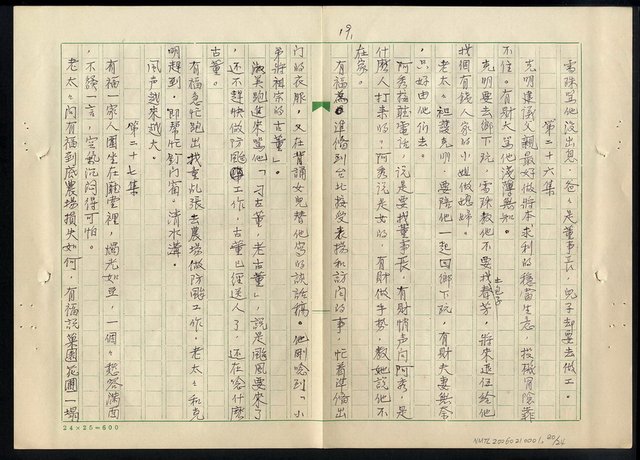 19.
雪珠罵他沒出息，爸々是董事長，兒子却要去做工。
第二十六集
克明建議父親最好做將本求利的穩當生意，投機冒險靠
不住。有財大罵他淺薄無知。
克明要去鄉下玩，雪珠教他不要找土包子馨芳，將來還伍給他
找個有錢人家的小姐做媳婦。
老太々袒護克明，要陪他一起回鄉下玩，有財夫妻無奈
，只好由他们去。
阿秀接聽電話，說是要找董事長，有財悄声问阿秀，是
什麼人打來的？阿秀說是女的，有財做手势，教她說他不
在家。
有福為準備到台北接受表揚和訪问的事，忙着準備出
门的衣服，又在背誦女兒替他寫的談話稿。他剛唸到「小
弟將祖宗的古董」，
淑英跑進來罵他「刁古董，老古董」，說是颱風要來了
，还不趕快做防颱工作，古董已經送人了，还在唸什麼
古董。
有福急忙跑出找童乩張去農場做防颱工作。老太々和克
明趕到，即帮忙釘门窗。清水溝。
风声越來越大。
第二十七集
有福一家人團坐在廳堂裡，燭光如豆，一個々愁容滿面
，不發一言，空氣沉闷得可怕。
老太々问有福到底農場損失如何，有福説菓園花圃一塌
24×25=600
NMTL20050210001, 20/24